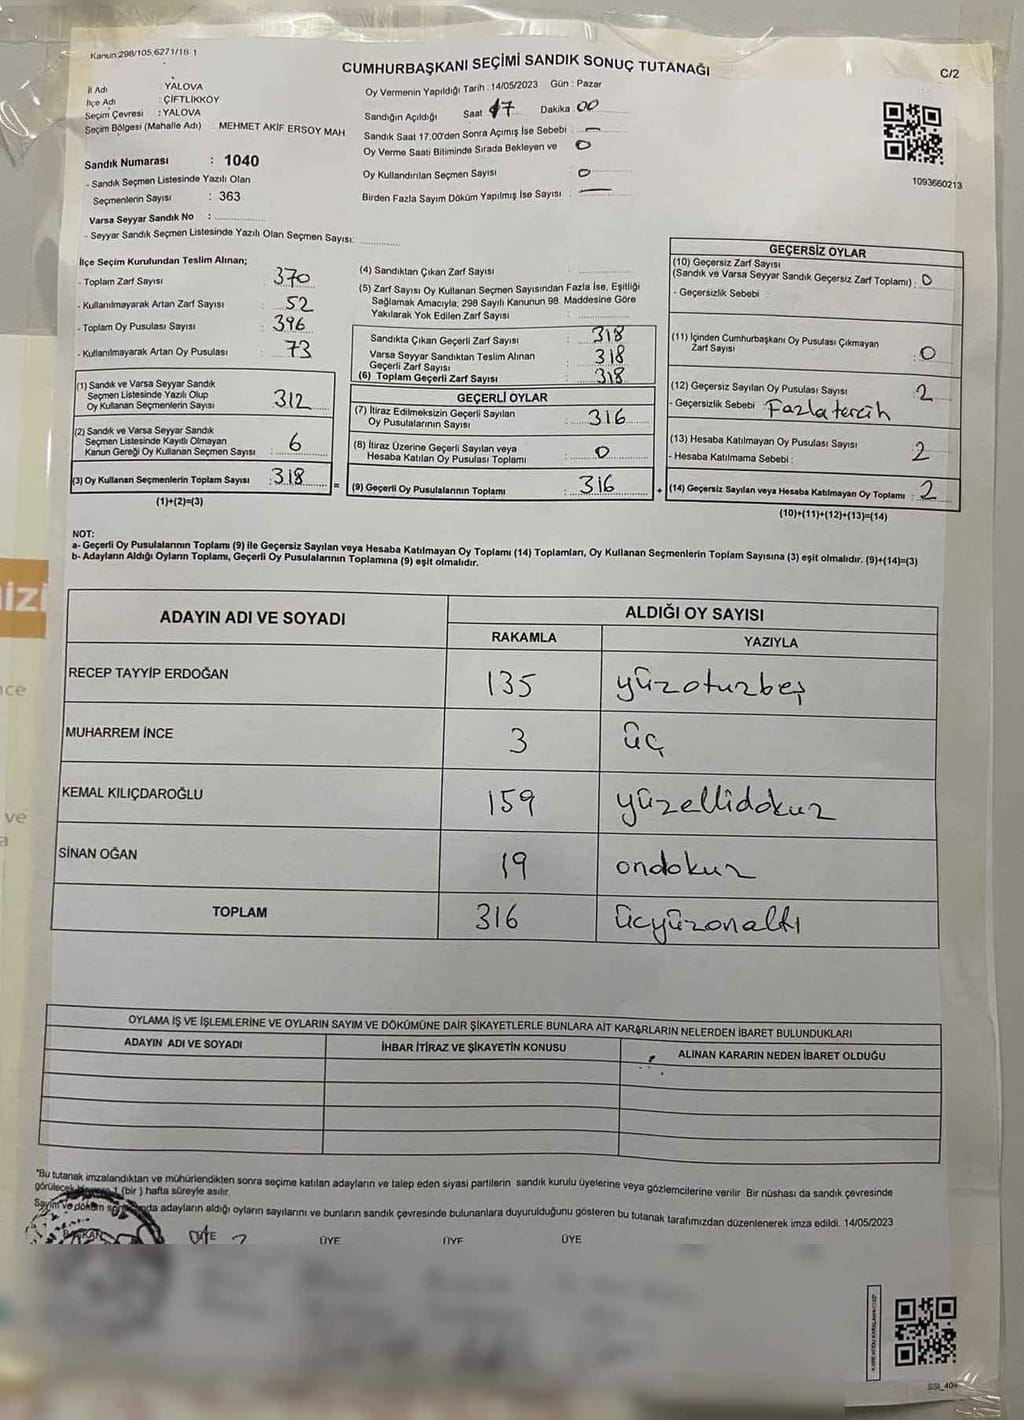 Kanun:298/105,6271/18-1
CUMHURBAŞKANI SEÇİMİ SANDIK SONUÇ TUTANAĞI
C/2
İl Adı : YALOVA
İlçe Adı : ÇİFTLİKKÖY
Seçim Çevresi : YALOVA
Seçim Bölgesi (Mahalle Adı) : MEHMET AKİF ERSOY MAH
Sandık Numarası : 1040
- Sandık Seçmen Listesinde Yazılı Olan
Seçmenlerin Sayısı : 363
Varsa Seyyar Sandık No :
- Seyyar Sandık Seçmen Listesinde Yazılı Olan Seçmen Sayısı:
Oy Vermenin Yapıldığı Tarih : 14/05/2023 Gün : Pazar
Sandığın Açıldığı Saat 17 Dakika 00
Sandık Saat 17:00'den Sonra Açımış İse Sebebi : —
Oy Verme Saati Bitiminde Sırada Bekleyen ve : 0
Oy Kullandırılan Seçmen Sayısı : 0
Birden Fazla Sayım Döküm Yapılmış İse Sayısı : —
1093660213
İlçe Seçim Kurulundan Teslim Alınan;
- Toplam Zarf Sayısı : 370
- Kullanılmayarak Artan Zarf Sayısı : 52
- Toplam Oy Pusulası Sayısı : 396
- Kullanılmayarak Artan Oy Pusulası : 73
(1) Sandık ve Varsa Seyyar Sandık
Seçmen Listesinde Yazılı Olup
Oy Kullanan Seçmenlerin Sayısı : 312
(2) Sandık ve Varsa Seyyar Sandık
Seçmen Listesinde Kayıtlı Olmayan
Kanun Gereği Oy Kullanan Seçmen Sayısı : 6
(3) Oy Kullanan Seçmenlerin Toplam Sayısı : 318
(1)+(2)=(3)
=
(4) Sandıktan Çıkan Zarf Sayısı :
(5) Zarf Sayısı Oy Kullanan Seçmen Sayısından Fazla İse, Eşitliği
Sağlamak Amacıyla; 298 Sayılı Kanunun 98. Maddesine Göre
Yakılarak Yok Edilen Zarf Sayısı :
Sandıkta Çıkan Geçerli Zarf Sayısı : 318
Varsa Seyyar Sandıktan Teslim Alınan
Geçerli Zarf Sayısı : 318
(6) Toplam Geçerli Zarf Sayısı : 318
GEÇERLİ OYLAR
(7) İtiraz Edilmeksizin Geçerli Sayılan
Oy Pusulalarının Sayısı : 316
(8) İtiraz Üzerine Geçerli Sayılan veya
Hesaba Katılan Oy Pusulası Toplamı : 0
(9) Geçerli Oy Pusulalarının Toplamı : 316
+
GEÇERSİZ OYLAR
(10) Geçersiz Zarf Sayısı
(Sandık ve Varsa Seyyar Sandık Geçersiz Zarf Toplamı) : 0
- Geçersizlik Sebebi :
(11) İçinden Cumhurbaşkanı Oy Pusulası Çıkmayan
Zarf Sayısı : 0
(12) Geçersiz Sayılan Oy Pusulası Sayısı : 2
- Geçersizlik Sebebi : Fazla tercih
(13) Hesaba Katılmayan Oy Pusulası Sayısı : 2
- Hesaba Katılmama Sebebi :
(14) Geçersiz Sayılan veya Hesaba Katılmayan Oy Toplamı : 2
(10)+(11)+(12)+(13)=(14)
NOT:
a- Geçerli Oy Pusulalarının Toplamı (9) ile Geçersiz Sayılan veya Hesaba Katılmayan Oy Toplamı (14) Toplamları, Oy Kullanan Seçmenlerin Toplam Sayısına (3) eşit olmalıdır. (9)+(14)=(3)
b- Adayların Aldığı Oyların Toplamı, Geçerli Oy Pusulalarının Toplamına (9) eşit olmalıdır.
ADAYIN ADI VE SOYADI
ALDIĞI OY SAYISI
RAKAMLA YAZIYLA
RECEP TAYYİP ERDOĞAN 135 yüzoturbeş
MUHARREM İNCE 3 üç
KEMAL KILIÇDAROĞLU 159 yüzellidokuz
SİNAN OĞAN 19 ondokuz
TOPLAM 316 üçyüzonaltı
OYLAMA İŞ VE İŞLEMLERİNE VE OYLARIN SAYIM VE DÖKÜMÜNE DAİR ŞİKAYETLERLE BUNLARA AİT KARARLARIN NELERDEN İBARET BULUNDUKLARI
ADAYIN ADI VE SOYADI İHBAR İTİRAZ VE ŞİKAYETİN KONUSU ALINAN KARARIN NEDEN İBARET OLDUĞU
*Bu tutanak imzalandıktan ve mühürlendikten sonra seçime katılan adayların ve talep eden siyasi partilerin sandık kurulu üyelerine veya gözlemcilerine verilir. Bir nüshası da sandık çevresinde
görülecek 1 (bir ) hafta süreyle asılır.
Sayım ve döküm adayların aldığı oyların sayılarını ve bunların sandık çevresinde bulunanlara duyurulduğunu gösteren bu tutanak tarafımızdan düzenlenerek imza edildi. 14/05/2023
BAŞKAN ÜYE ÜYE ÜYE ÜYE
izi
ve